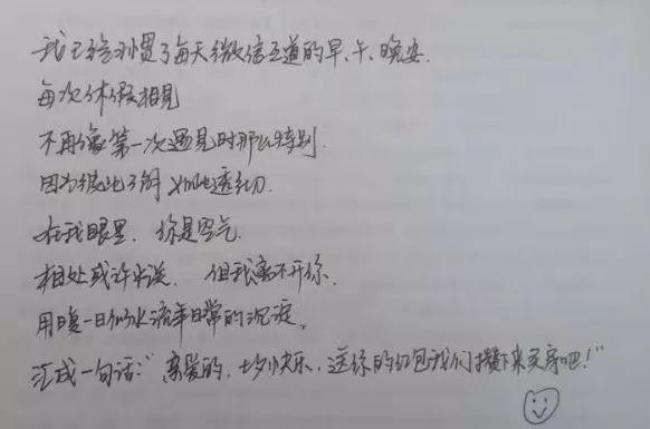 我已经习惯了每天微信互道的早、午、晚安.
每次休假相见
不再像第一次遇见时那么特别.
因为彼此了解如此透彻.
在我眼里. 你是空气.
相处或许平淡. 但我离不开你.
用日复一日似水流年日常的沉淀。
汇成一句话:"亲爱的. 七夕快乐. 送你的红包我们攒下来买房吧!"